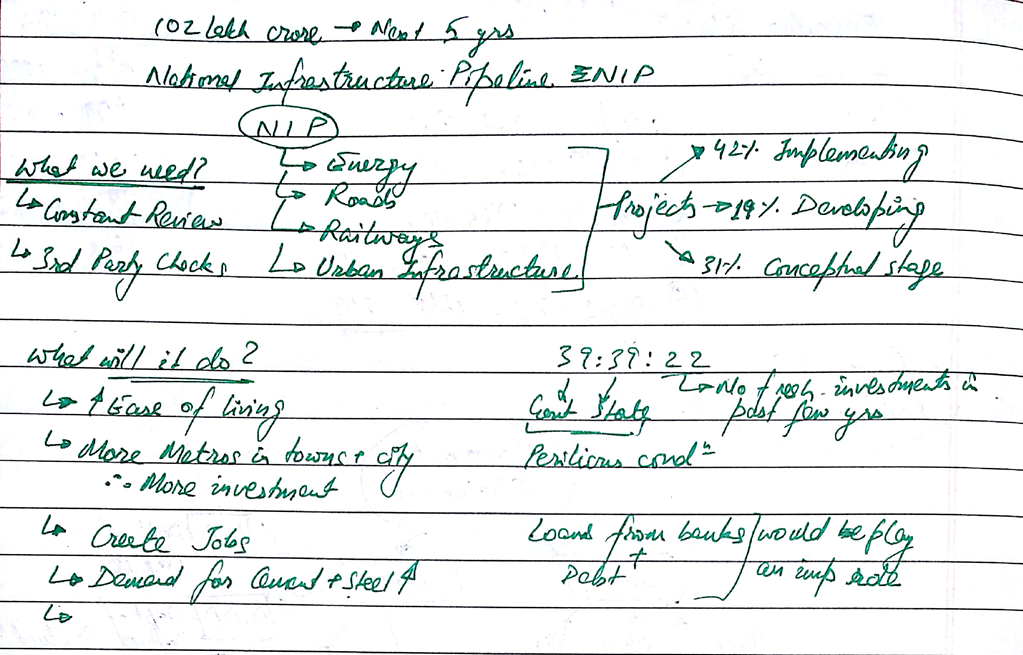 102 Lakh crore → Next 5 yrs
National Infrastructure Pipeline ≡ NIP
NIP
What we need?
↳ Constant Review
↳ 3rd Party Checks
↳ Energy
↳ Roads
↳ Railways
↳ Urban Infrastructure
Projects
→ 42% Implementing
→ 19% Developing
→ 31% Conceptual stage
What will it do?
↳ ↑ Ease of living
↳ More Metros in towns + city
∴ More investment
↳ Create Jobs
↳ Demand for Cement + Steel ↑
↳
39:39:22
Cent State
↳ No fresh investments in
past few yrs
Perilious condn
Loans from banks
+
Debt
would be play
an imp role